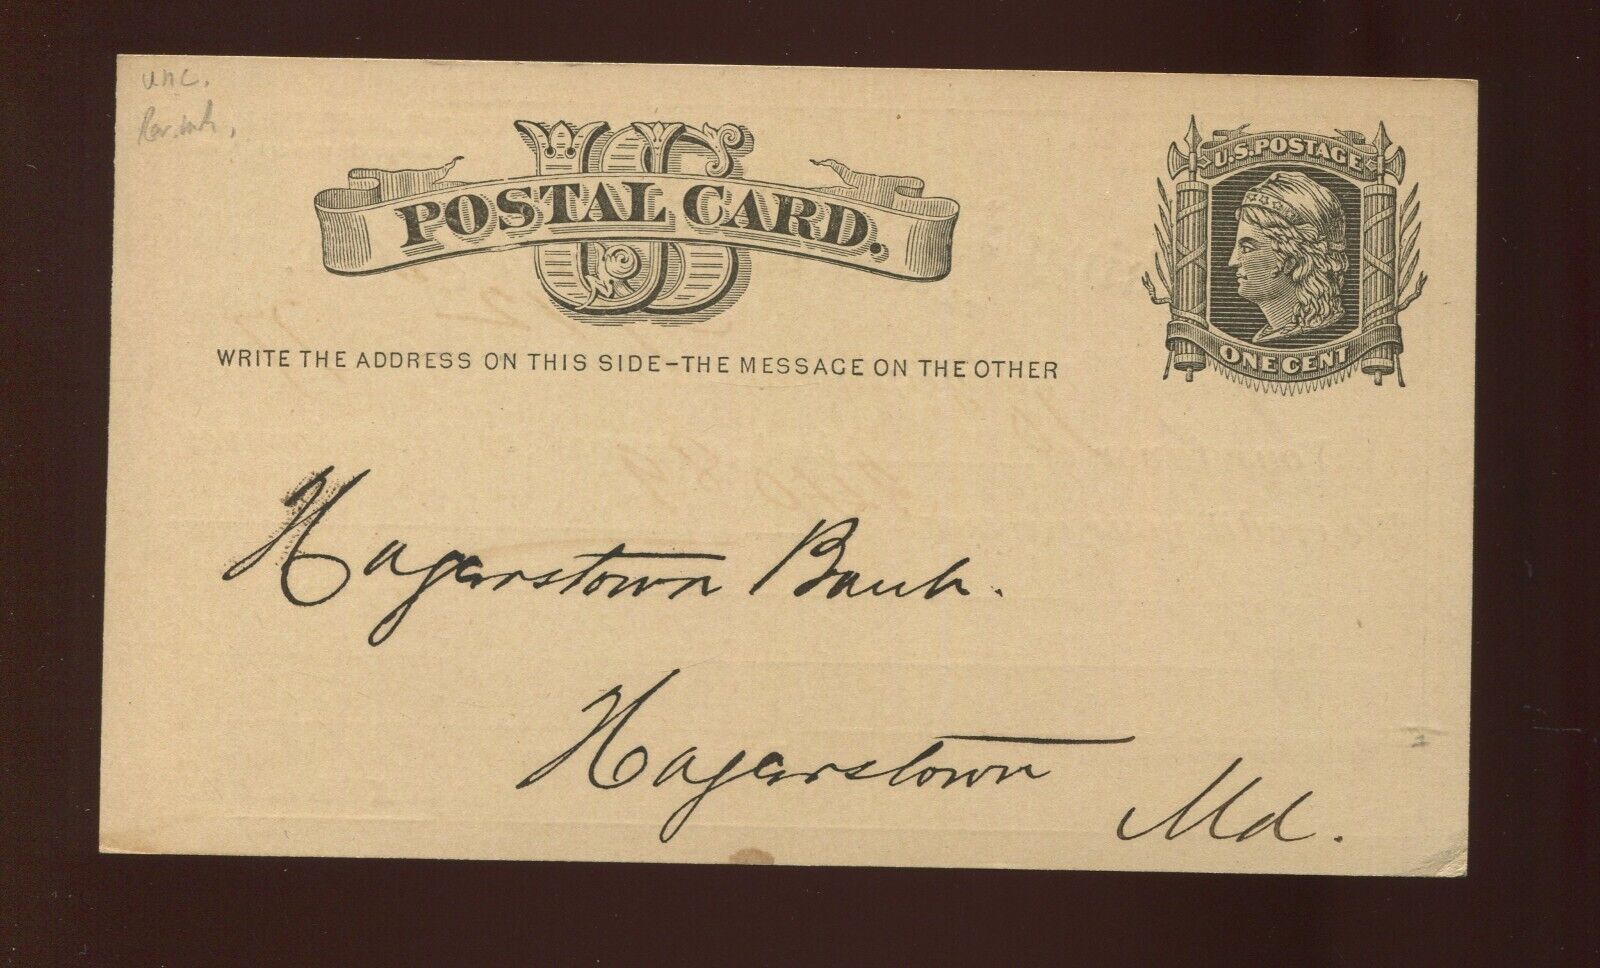 unc.
U.S. POSTAGE
US
POSTAL CARD.
WRITE THE ADDRESS ON THIS SIDE-THE MESSAGE ON THE OTHER
ONE CENT
Hagerstown Bank.
Hagerstown
Md.